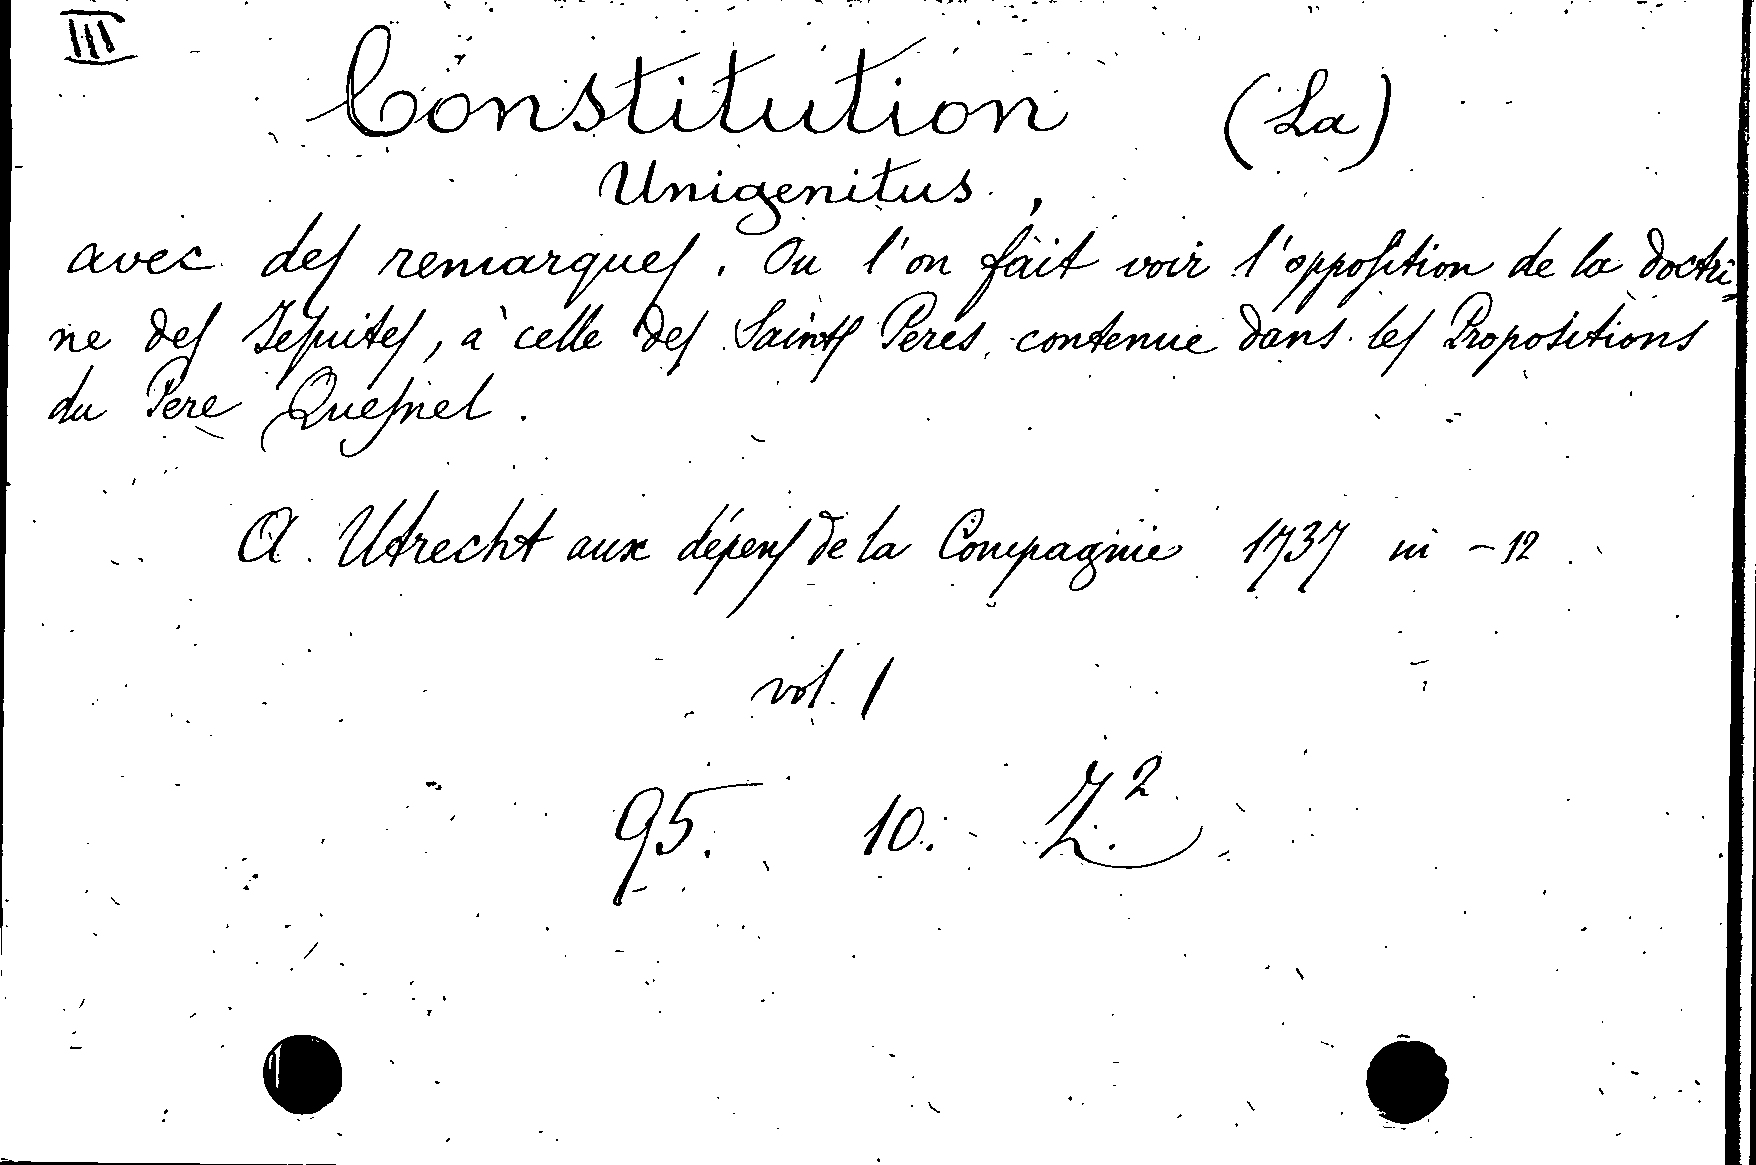 III
Constitution (La)
Unigenitus,
avec des remarques. Ou l'on fait voir l'opposition de la doctri-
ne des Jesuites, à celle des Saints Peres, contenue dans les Propositions
du Pere Quesnel.
A Utrecht aux dépens de la Compagnie 1737 in-12
vol. 1
95. 10. Z.²